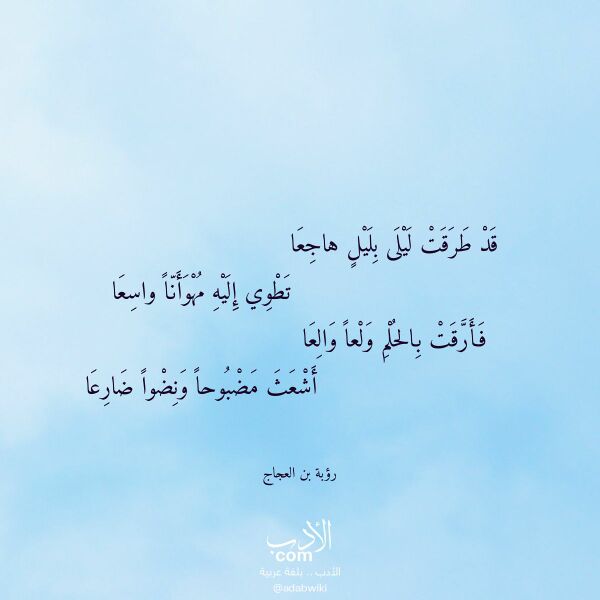 قَدْ طَرَقَتْ لَيْلَى بِلَيْلٍ هاجِعَا
تَطْوِي إِلَيْهِ مُهْوَأَنّاً واسِعَا
فَأَرَّقَتْ بِالحُلْمِ وَلْعاً وَالِعَا
أَشْعَثَ مَضْبُوحاً وَنِضْواً ضَارِعَا
رؤبة بن العجاج
الأدب
.com
الأدب .. بلغة عربية
@adabwiki